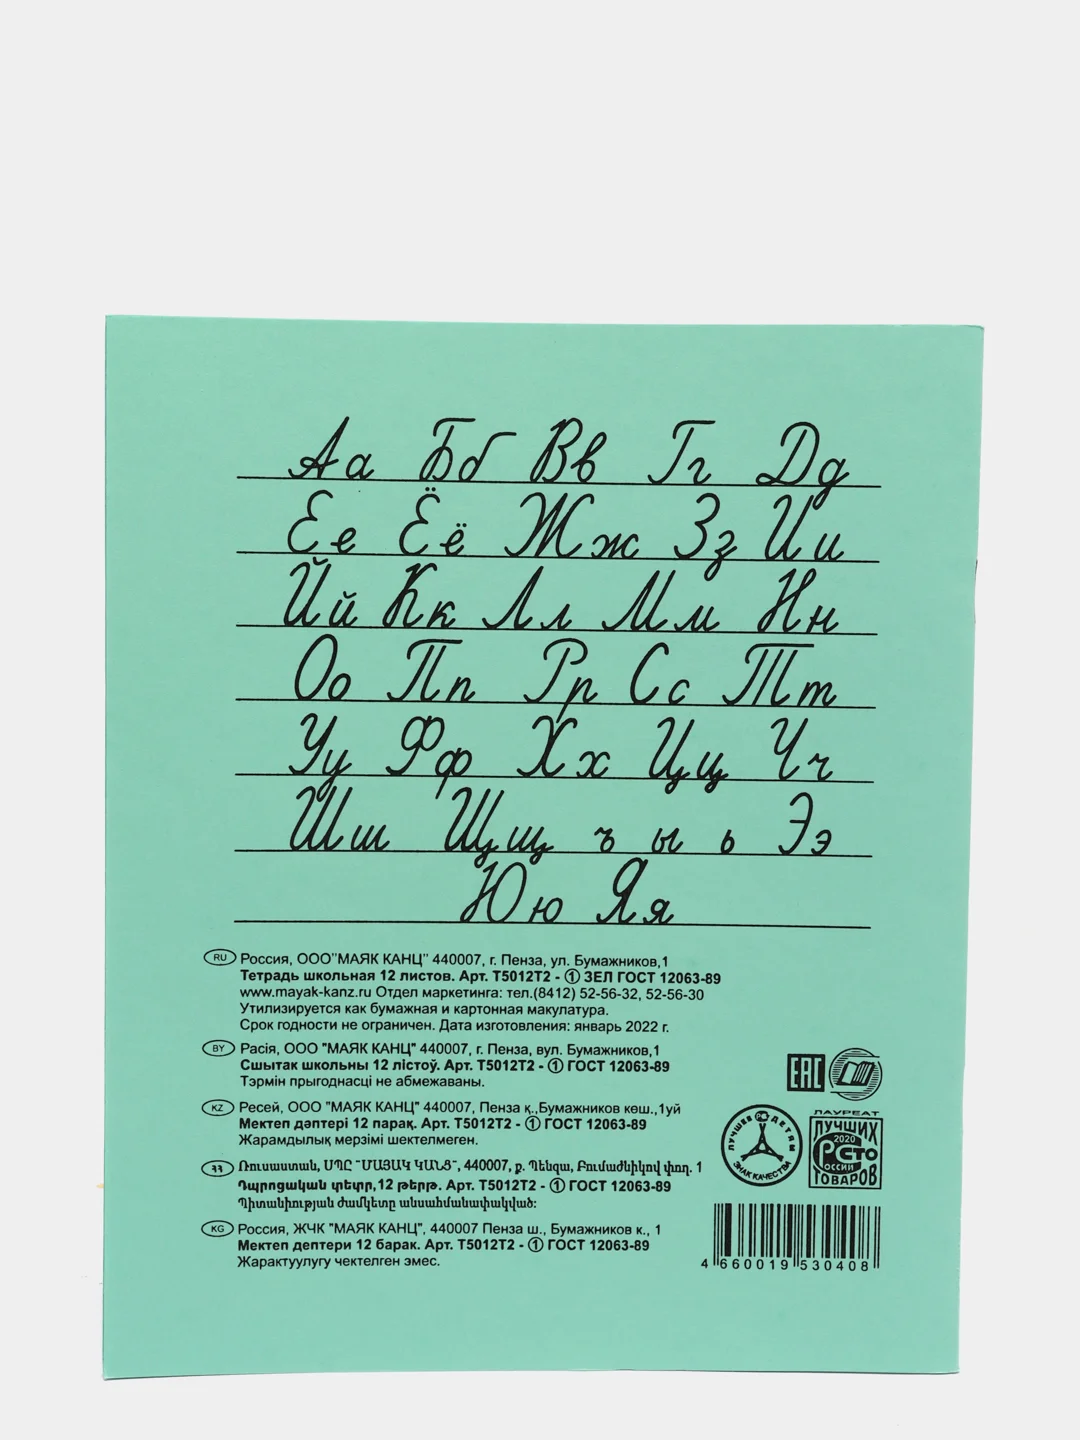 Аа Бб Вв Гг Дд
Ее Ёё Жж Зз Ии
Йй Кк Лл Мм Нн
Оо Пп Рр Сс Тт
Уу Фф Хх Цц Чч
Шш Щщ ъ ы ь Ээ
Юю Яя
RU Россия, ООО"МАЯК КАНЦ" 440007, г. Пенза, ул. Бумажников,1
Тетрадь школьная 12 листов. Арт. Т5012Т2 - ① ЗЕЛ ГОСТ 12063-89
www.mayak-kanz.ru Отдел маркетинга: тел.(8412) 52-56-32, 52-56-30
Утилизируется как бумажная и картонная макулатура.
Срок годности не ограничен. Дата изготовления: январь 2022 г.
BY Расія, ООО "МАЯК КАНЦ" 440007, г. Пенза, вул. Бумажников,1
Сшытак школьны 12 лістоў. Арт. Т5012Т2 - ① ГОСТ 12063-89
Тэрмін прыгоднасці не абмежаваны.
KZ Ресей, ООО "МАЯК КАНЦ" 440007, Пенза қ.,Бумажников көш.,1уй
Мектеп дәптері 12 парақ. Арт. Т5012Т2 - ① ГОСТ 12063-89
Жарамдылық мерзімі шектелмеген.
ՀՀ Ռուսաստան, ՍՊԸ "ՄԱՅԱԿ ԿԱՆՑ", 440007, ք. Պենզա, Բումաժնիկով փող. 1
Դպրոցական տետր,12 թերթ. Арт. Т5012Т2 - ① ГОСТ 12063-89
Պիտանիության ժամկետը անսահմանափակված:
KG Россия, ЖЧК "МАЯК КАНЦ", 440007 Пенза ш., Бумажников к., 1
Мектеп дептери 12 барак. Арт. Т5012Т2 - ① ГОСТ 12063-89
Жарактуулугу чектелген эмес.
EAC
ЛУЧШЕЕ ДЕТЯМ
ЗНАК КАЧЕСТВА
ЛАУРЕАТ
ЛУЧШИХ
2020
СТО
РОССИИ
ТОВАРОВ
4 660019 530408